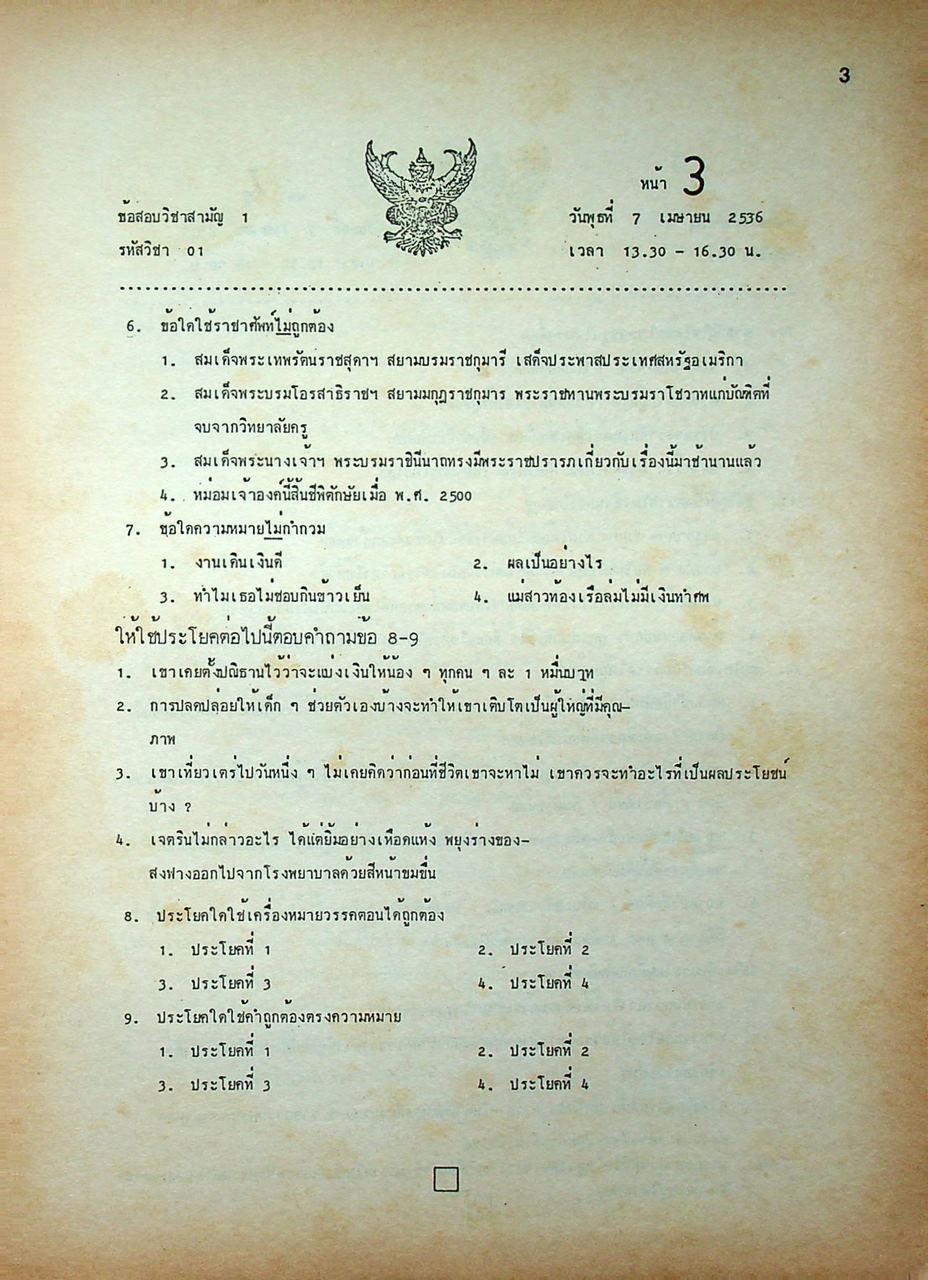 3
หน้า 3
ข้อสอบวิชาสามัญ 1
วันพุธที่ 7 เมษายน 2536
รหัสวิชา 01
เวลา 13.30 - 16.30 น.
6. ข้อใดใช้ราชาศัพท์ไม่ถูกต้อง
1. สมเด็จพระเทพรัตนราชสุดาฯ สยามบรมราชกุมารี เสด็จประพาสประเทศสหรัฐอเมริกา
2. สมเด็จพระบรมโอรสาธิราชฯ สยามมกุฎราชกุมาร พระราชทานพระบรมราโชวาทแก่บัณฑิตที่
จบจากวิทยาลัยครู
3. สมเด็จพระนางเจ้าฯ พระบรมราชินีนาถทรงมีพระราชปรารภเกี่ยวกับเรื่องนี้มาช้านานแล้ว
4. หม่อมเจ้าองค์นี้สิ้นชีพิตักษัยเมื่อ พ.ศ. 2500
7. ข้อใดความหมายไม่กำกวม
1. งานเดินเงินดี
2. ผลเป็นอย่างไร
3. ทำไมเธอไม่ชอบกินข้าวเย็น
4. แม่สาวท้องเรือล่มไม่มีเงินทำศพ
ให้ใช้ประโยคต่อไปนี้ตอบคำถามข้อ 8-9
1. เขาเคยตั้งปณิธานไว้ว่าจะแบ่งเงินให้น้อง ๆ ทุกคน ๆ ละ 1 หมื่นบาท
2. การปลดปล่อยให้เด็ก ๆ ช่วยตัวเองบ้างจะทำให้เขาเติบโตเป็นผู้ใหญ่ที่มีคุณ-
ภาพ
3. เขาเที่ยวเตร่ไปวันหนึ่ง ๆ ไม่เคยคิดว่าก่อนที่ชีวิตเขาจะหาไม่ เขาควรจะทำอะไรที่เป็นผลประโยชน์
บ้าง ?
4. เจตรินไม่กล่าวอะไร ได้แต่ยิ้มอย่างเหือดแห้ง พยุงร่างของ-
สงฟางออกไปจากโรงพยาบาลด้วยสีหน้าขมขื่น
8. ประโยคใดใช้เครื่องหมายวรรคตอนได้ถูกต้อง
1. ประโยคที่ 1
2. ประโยคที่ 2
3. ประโยคที่ 3
4. ประโยคที่ 4
9. ประโยคใดใช้คำถูกต้องตรงความหมาย
1. ประโยคที่ 1
2. ประโยคที่ 2
3. ประโยคที่ 3
4. ประโยคที่ 4